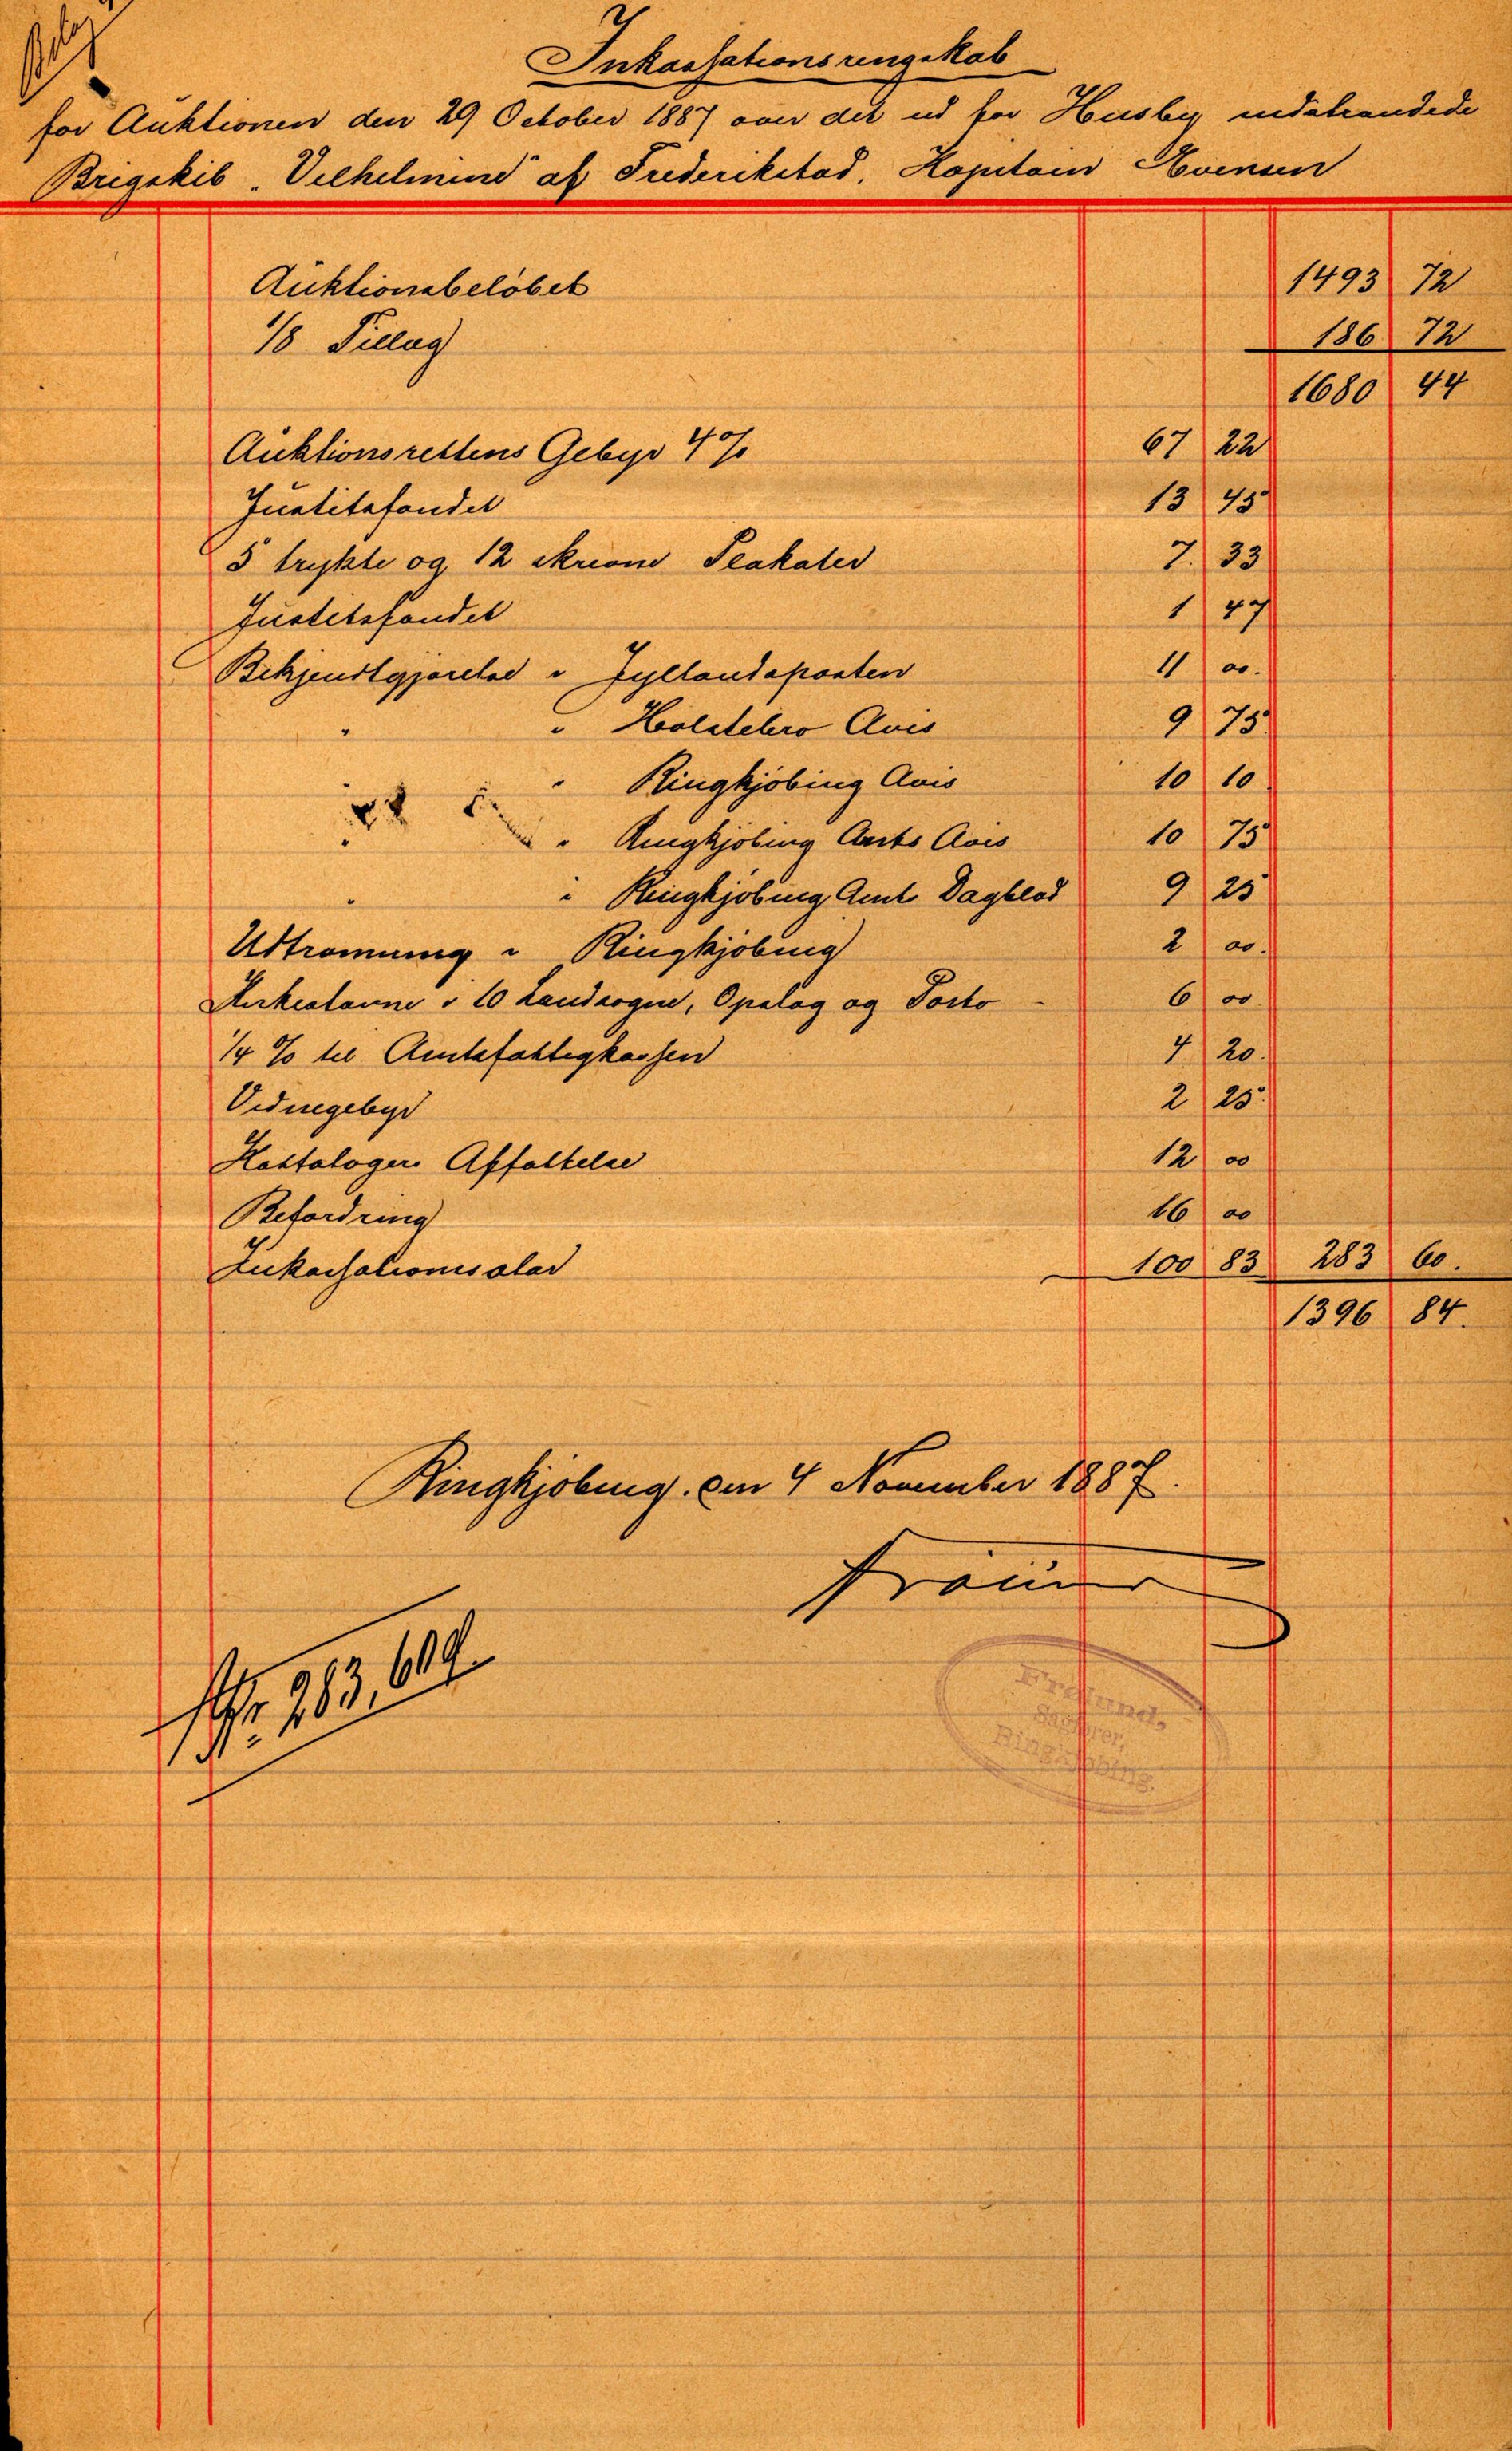 Bilag
Inkassationsrengskab
for Auktionen den 29 October 1887 over det ud for Husby indstrandede
Brigskib "Vilhelmine" af Frederikstad, Kapitain Evensen
Auktionsbeløbet 1493 72
1/8 Tillæg 186 72
1680 44
Auktionsrettens Gebyr 4% 67 22
Justitsfondet 13 45
5 trykte og 12 skrevne Plakater 7. 33
Justitsfondet 1 47
Bekjendtgjørelse i Jyllandsposten 11 00.
" " Holstebro Avis 9 75
" Ringkjøbing Avis 10 10
" " Ringkjøbing Amts Avis 10 75
" " Ringkjøbing Amts Dagblad 9 25
Udtromning i Ringkjøbing 2 00.
Kirkestævne i 10 Landsogne, Opslag og Porto - 6 00
1/4 % til Amtsfattigkassen 4 20.
Vidnegebyr 2 25.
Kattalogers Affattelse 12 00
Befordring 16 00
Inkassationssalar 100 83 283 60.
1396 84.
Ringkjøbing. den 4 November 1887.
Kr. 283,60 Ø.
Frølund,
Sagfører,
Ringkjøbing.